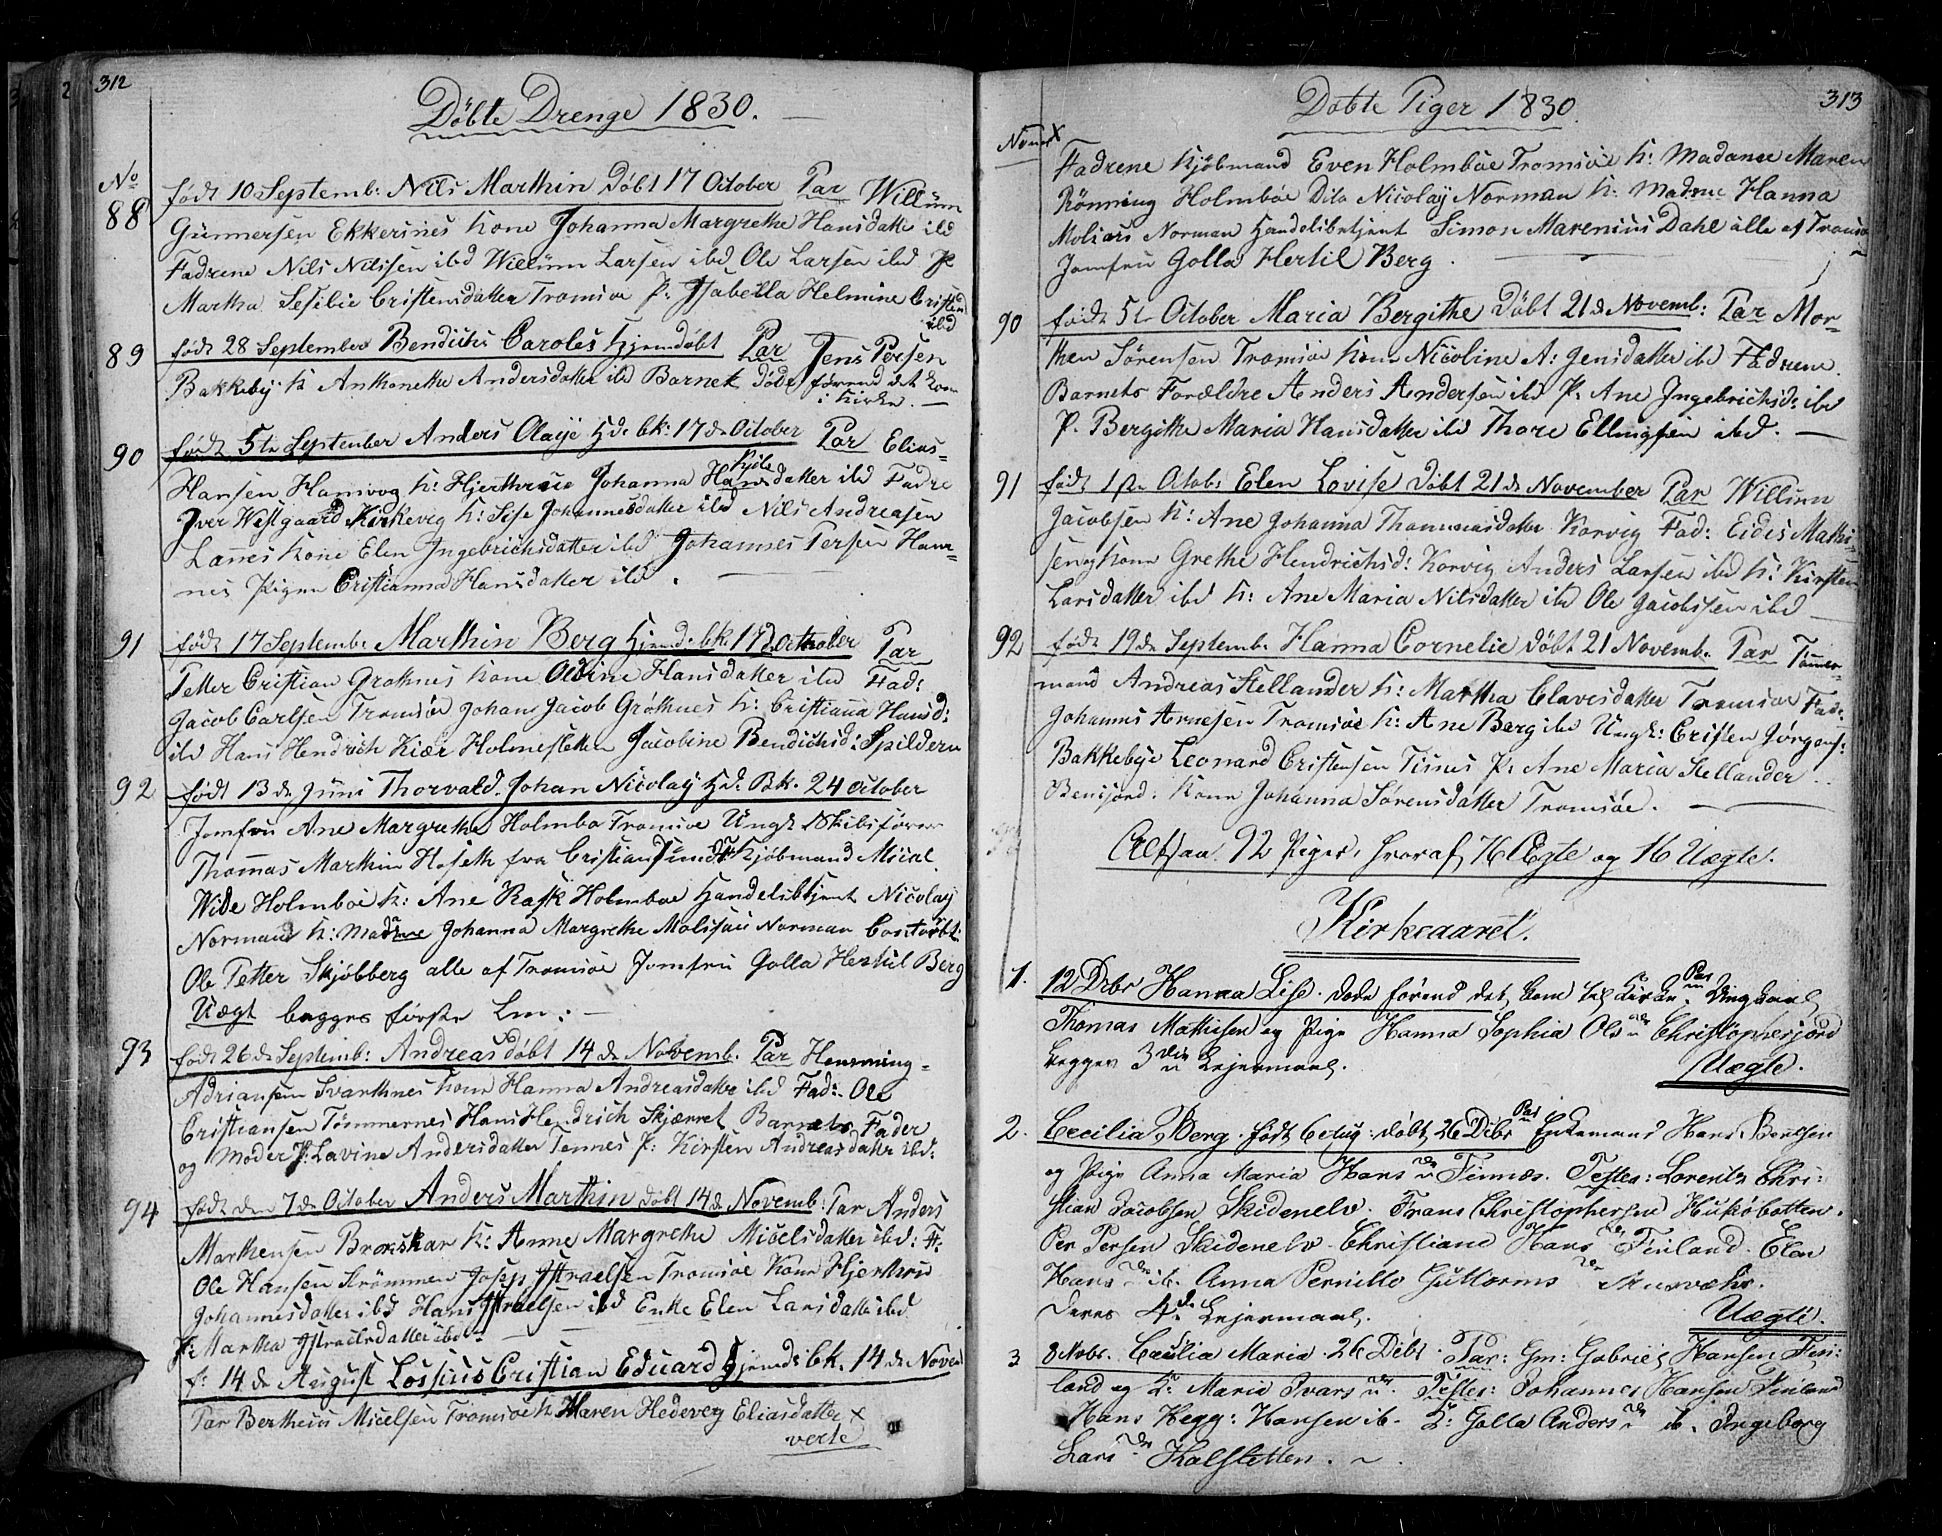 312
Döbte Drenge 1830.
No
88 födt 10 Septemb: Nils Marthin Döbt 17 October Par Willum
Gunnersen Ekkerines Kone Johanna Margrethe Hansdatte ibd
Fadrene Nils Nilssen ibd Willum Larsen ibd Ole Larsen ibd P
Martha Sesilie Cristensdatter Tromsöe P: Isabella Helmine Cristend
ibd
89 födt 28 September Bendichs Caroles Hjemdöbt Par Jens Persen
Bakkeby K Anthonette Andersdatter ibd Barnet döde förend det kom
i Kirke. —
90 födt 5te September Anders Olaye Hd. bk: 17 de October Par Elias
Hansen Hamvog K: Hjerthrue Johanna Hansdatter ibd Fadre
Iver Westgaard Kirkevig K: Sise Johannesdatter ibd Nils Andreasen
Lanes Kone Elen Ingebrichsdatter ibd Johannes Persen Ham-
nes Pigen Cristianna Hansdatter ibd.
91 födt 17 Septemb: Marthin Berg Hjemd. bk. 17de October Par
Petter Cristian Grötnes Kone Oldrine Hansdatter ibd Fad:
Jacob Carlsen Tromsöe Johans Jacob Grötnes K: Cristianna Hansd:
ibd Hans Hendrich Kiær Holmesletten Jacobine Bendichsd: Spildern
92 födt 13 de Juni Thorvald Johan Nicolay Hd. Bk. 24 October
Jomfru Ane Margrethe Holmbo Tromsöe Ungk Skibsförer
Thommas Marthin Hoseth fra Cristiansund Kjöbmand Mical
Wide Holmboe K: Ane Rask Holmboe Handelsbtjent Nicolay
Normand K: Madme Johanna Margrethe Molisau Norman Contorbt:
Ole Petter Skjölberg alle af Tromsöe Jomfru Golla Hertil Berg
Uægt begges förste Lm: —
93 födt 26 de Septemb: Andreas döbt 14 de Novemb. Par Henning
Adriansen Svartnes Kone Hanna Andreasdatter ibd Fad: Ole
Cristiansen Tömmernes Hans Hendrich Skjærret Barnets Fader
og Moder P: Lavine Andersdatter Tennes P: Kirsten Andreasdatter ibd.
94 födt den 7 de October Anders Marthin döbt 14 de Novemb: Par Anders
Marthensen Bronskar K: Anne Margrethe Micelsdatter ibd: F:
Ole Hansen Strömmen Josep Istraelsen Tromsöe Kone Hjerthru
Johannesdatter ibd Hans Istraelsen ibd Enke Elen Larsdatter ibd
P: Martha Istraelsdatter ibd —
f: 14 de August Lossius Cristian Eduard Hjemd: bk. 14 de Novem
Par Bertheus Micelsen Tromsöe K Maren Hedeveg Eliasdatter x
verte
313
Döbte Piger 1830.
Fadrene Kjöbmand Even Holmboe Tromsöe K: Madame Maren
Rönning Holmboe Dito Nicolay Norman K: Madme Hanna
Molisrs Norman Handelsbetjent Simon Marenius Dahl alle af Tromsö
Jomfru Golla Hertil Berg.
90 födt 5te October Maria Bergithe Döbt 21 de Novemb: Par Mor-
then Sörensen Tromsöe Kone Nicoline A: Jensdatter ibd Fadrene
Barnets Forældre Anders Andersen ibd P: Ane Ingebrichsd: ibd
P. Bergithe Maria Hansdatter ibd Thore Ellingsen ibd. —
91 födt 1ste Octob: Elen Lovise Döbt 21 de November Par Willum
Jacobsen K: Ane Johanna Thommasdatter Korvig Fad: Eidis Mathi-
sens Kone Grethe Hendrichsd: Korvig Anders Larsen ibd K: Kirsten
Larsdatter ibd K: Ane Maria Nilsdatter ibd Ole Jacobssen ibd
92 födt 19 de Septemb. Hanna Cornelie döbt 21 Novemb. Par Tömer-
mand Andreas Stellander K: Martha Clavesdatter Tromsöe Fad:
Johannes Arnesen Tromsöe K: Ane Berg ibd Ungk: Cristen Jörgens:
Bakkebye Leonard Cristensen Tisnes P: Ane Maria Stellander
Bensjord. Kone Johanna Sörensdatter Tromsöe.
Altsaa 92 Piger, hvoraf 76 Ægte og 16 Uægte.
Kirkeaaret.
1. 12 Dcbr Hanna Lise. döde förend det kom til Kirke. Par Ungkarl
Thomas Mathisen og Pige Hanna Sophia Ols dr Christophersjord
begges 3die Lejermaal. Uægte.
2. Cecilia Berg. födt 6 Aug: döbt 26 Dcbr Par Enkemand Hans Bentsen
og Pige Anna Maria Hans dr Finnæs. Testes: Lorents Chri-
stian Jacobsen Skidenelv. Frans Christophersen Kuköbotten.
Per Persen Skidenelv. Christiane Hans dr Finland. Elen
Hans dr ib. Anna Pernille Guttorms dr
deres 4de Lejermaal. Uægte.
3 8 Nobr. Cecilia Maria 26 Dcbr. Par: Gm: Gabriel Hansen Fin-
land og K: Marie Ivars dr. Testes: Johannes Hansen Finland
Hans Hegg: Hansen ib. K: Golla Anders dr ib. Ingeborg
Lars dr Kalsletten.